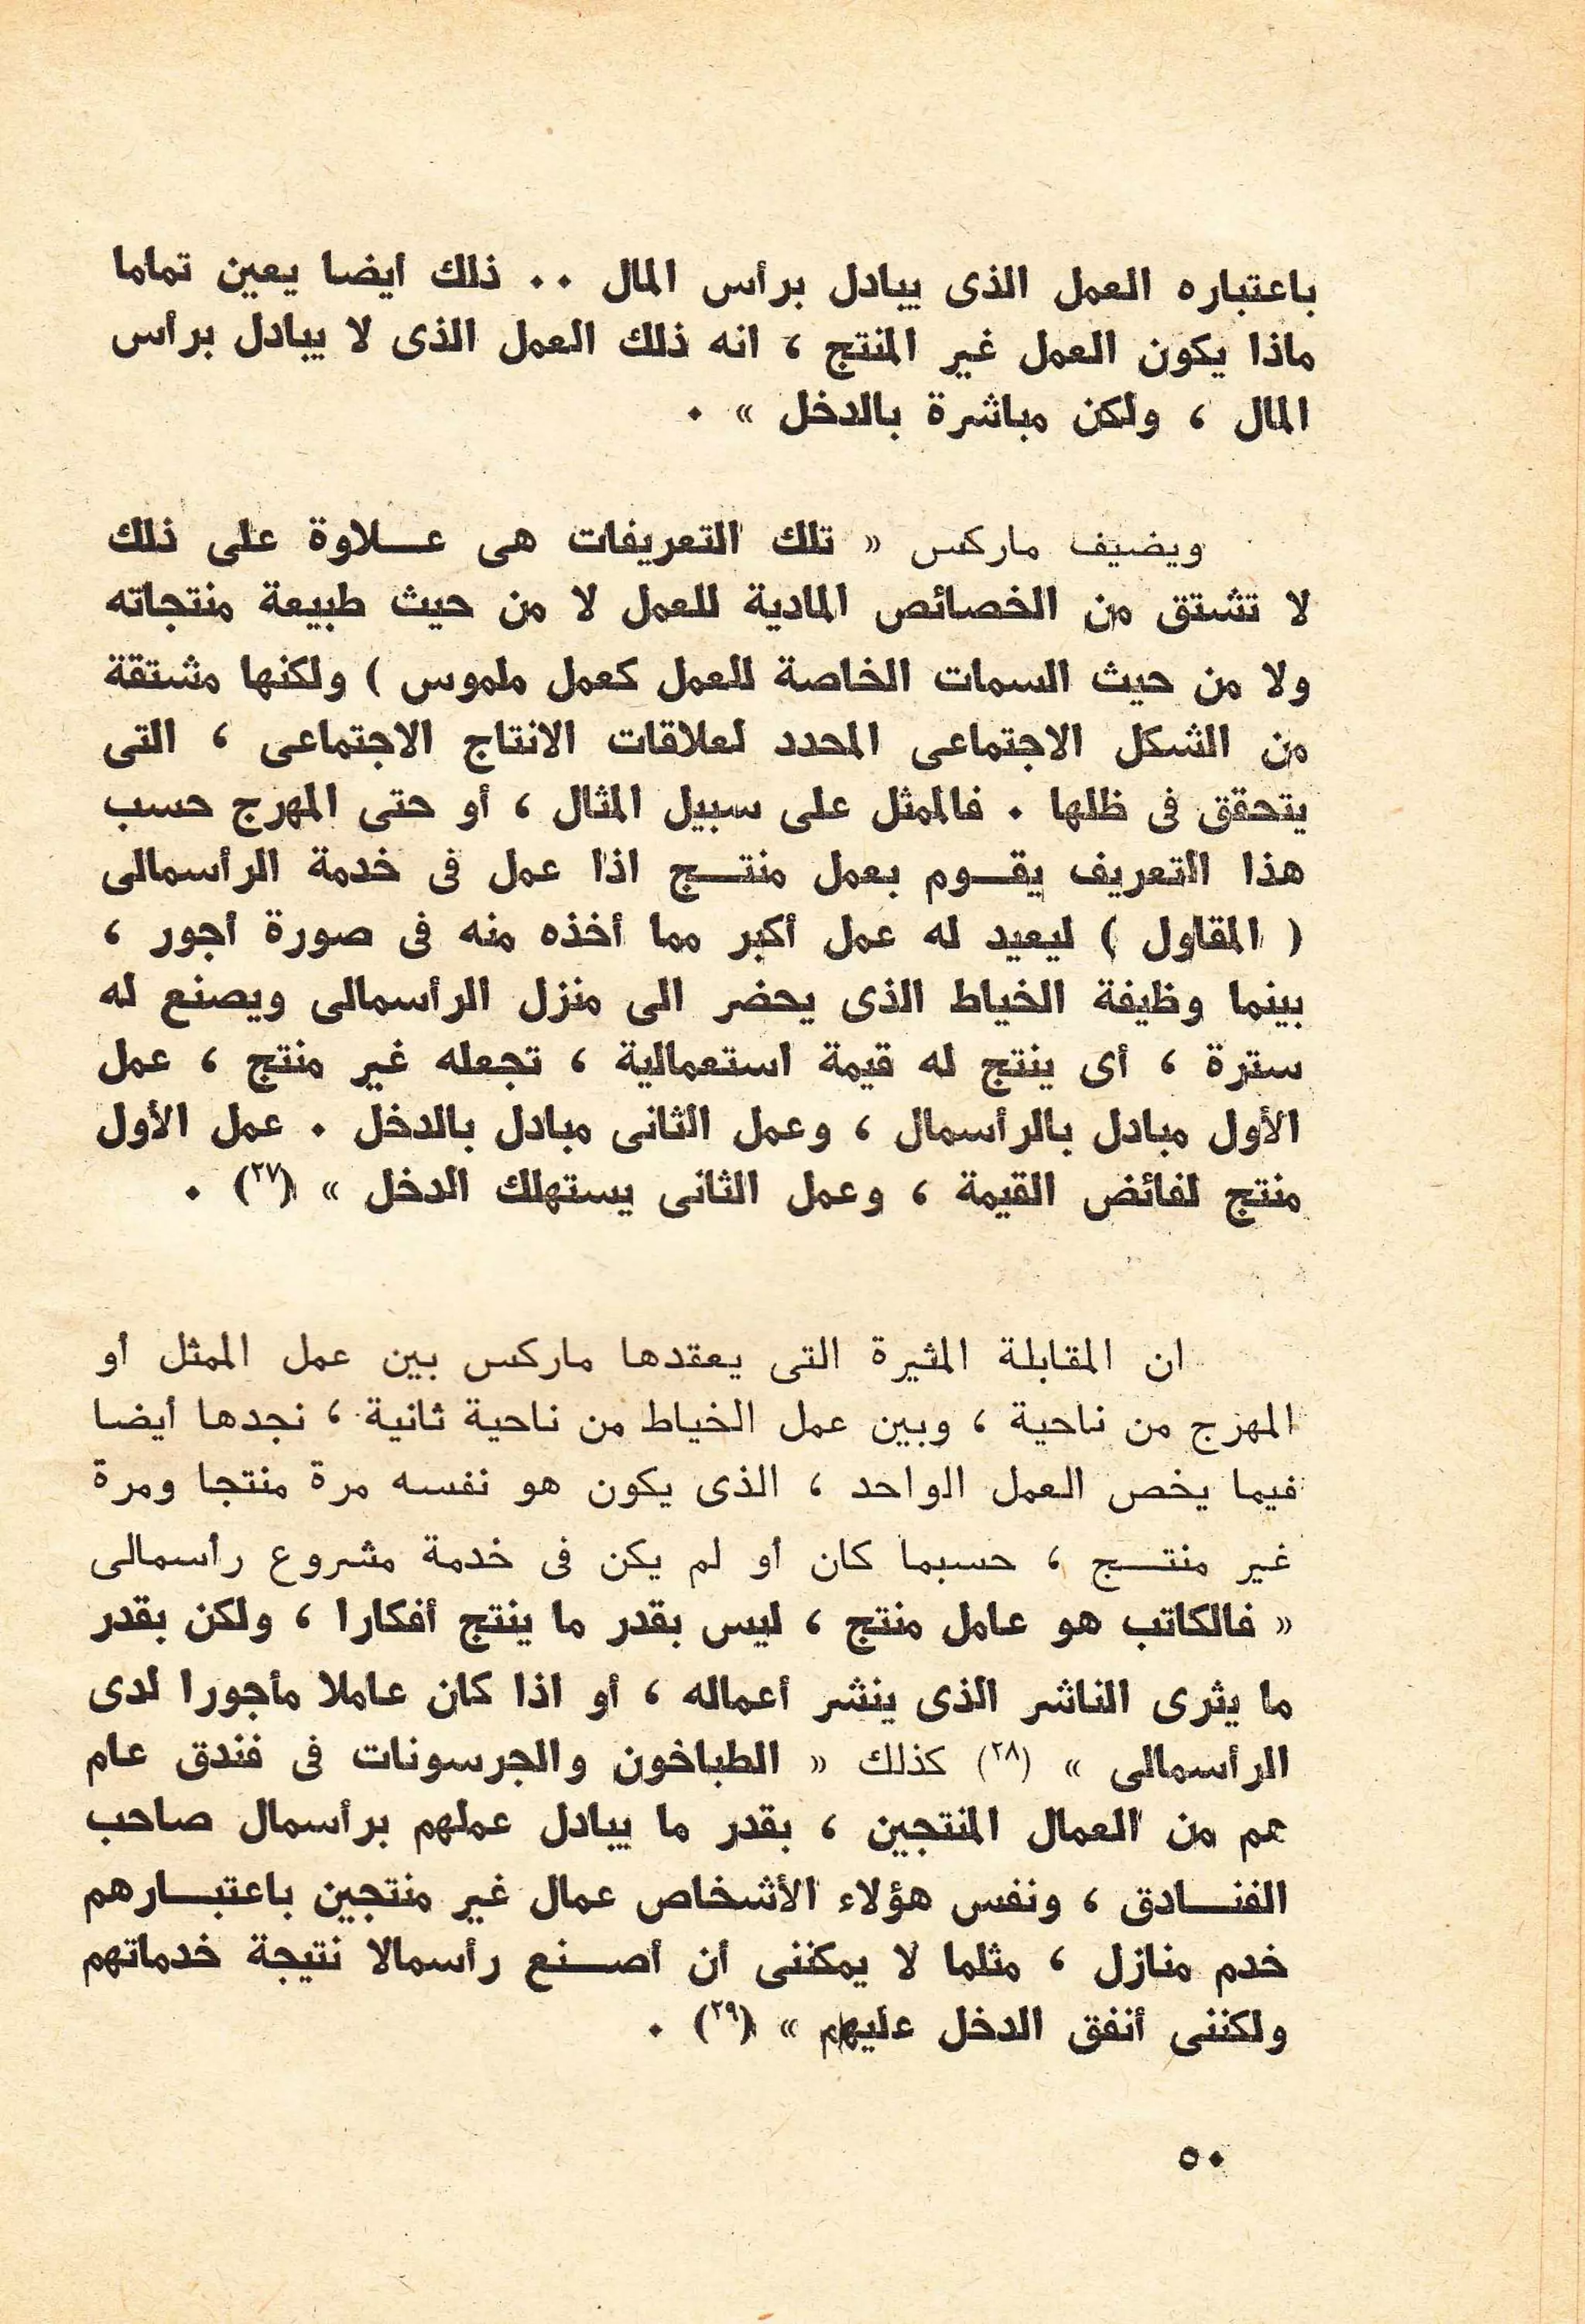 باعتباره العمل الذى يبادل برأس المال ٠٠ ذلك أيضا يعين تماما
ماذا يكون العمل غير المنتج ، انه ذلك العمل الذى لا يبادل برأس
المال ، ولكن مباشرة بالدخل » ٠
ويضيف ماركس « تلك التعريفات هى عـــلاوة على ذلك
لا تشتق من الخصائص المادية للعمل لا من حيث طبيعة منتجاته
ولا من حيث السمات الخاصة للعمل كعمل ملموس ) ولكنها مشتقة
من الشكل الاجتماعى المحدد لعلاقات الانتاج الاجتماعى ، التى
يتحقق فى ظلها ٠ فالممثل على سبيل المثال ، أو حتى المهرج حسب
هذا التعريف يقـــوم بعمل منتـــج اذا عمل فى خدمة الرأسمالى
( المقاول ) ليعيد له عمل أكبر مما أخذه منه فى صورة أجور ،
بينما وظيفة الخياط الذى يحضر الى منزل الرأسمالى ويصنع له
سترة ، أى ينتج له قيمة استعمالية ، تجعله غير منتج ، عمل
الأول مبادل بالرأسمال ، وعمل الثانى مبادل بالدخل ٠ عمل الأول
منتج لفائض القيمة ، وعمل الثانى يستهلك الدخل » (٢٧) ٠
ان المقابلة المثيرة التى يعقدها ماركس بين عمل الممثل أو
المهرج من ناحية ، وبين عمل الخياط من ناحية ثانية ، نجدها أيضا
فيما يخص العمل الواحد ، الذى يكون هو نفسه مرة منتجا ومرة
غير منتـــج ، حسبما كان أو لم يكن فى خدمة مشروع رأسمالى
« فالكاتب هو عامل منتج ، ليس بقدر ما ينتج أفكارا ، ولكن بقدر
ما يثرى الناشر الذى ينشر أعماله ، أو اذا كان عاملا مأجورا لدى
الرأسمالى » (٢٨) كذلك « الطباخون والجرسونات فى فندق عام
هم من العمال المنتجين ، بقدر ما يبادل عملهم برأسمال صاحب
الفنـــادق ، ونفس هؤلاء الأشخاص عمال غير منتجين باعتبـــارهم
خدم منازل ، مثلما لا يمكننى أن أصـــنع رأسمالا نتيجة خدماتهم
ولكننى أنفق الدخل عليهم » (٢٩) ٠
٥٠